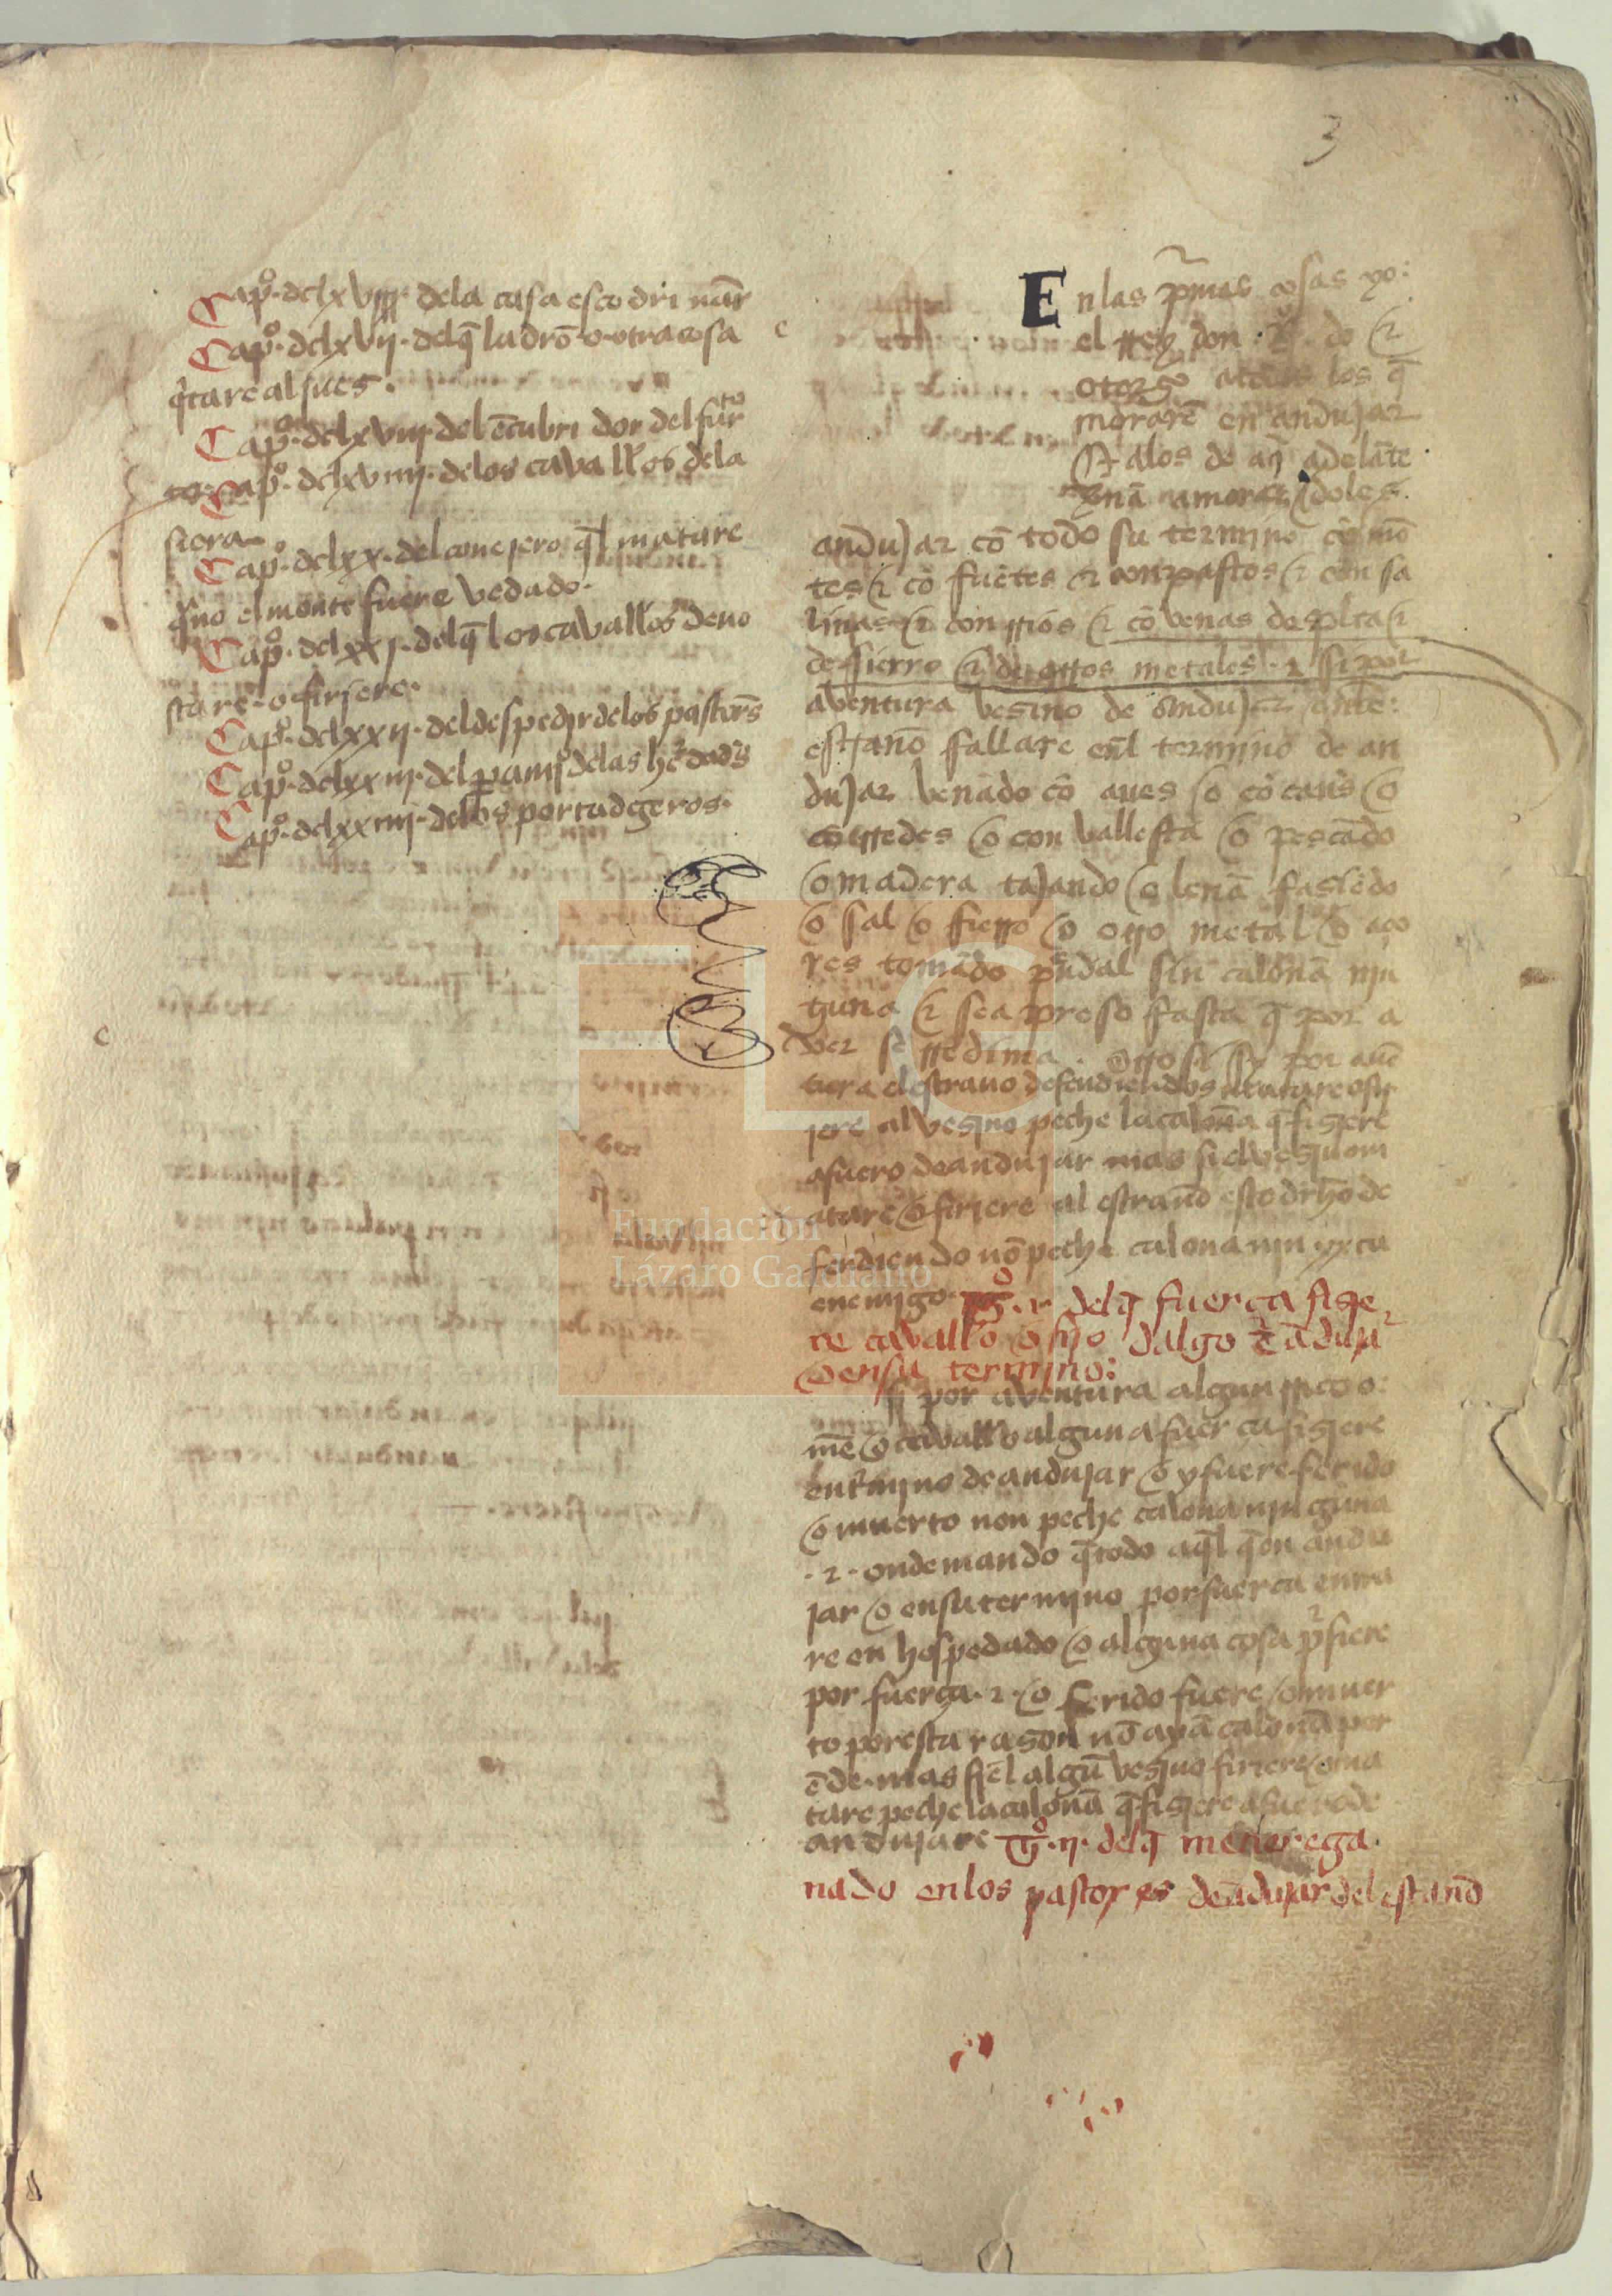 3
Capº. dclxvj. dela casa escodri nar̄
Capº. dclxvij. delq̄ ladrō o otra cosa
q̇tare al jues.
Capº. dclxviij. del ēcubri dor del fur
to. Capº. dclxviiij. delos cavall'os dela
siera
Capº. dclxx. del conejero q̄l matare
q̇no el monte fuere vedado.
Capº. dclxxj. delq̄ los cavallos deno
stare o firiere.
Capº. dclxxij. del despedir delos pastor̄s
Capº. dclxxiij. del ꝑamj̊ delas h̄edad̄s
Capº. dclxxiiij. delos portadgeros.
En las p̃mas cosas yo:
el rrey don . do ⁊
otorgo atodos los q̄
morarē en andujar
⁊ alos de aq̄ adelāte
vernā amorar ⁊ doles
andujar cō todo su termino cō mō
tes ⁊ cō fuētes ⁊ con pastos ⁊ con sa
linas ⁊ con rrios ⁊ cō venas de plata ⁊
de fierro ⁊ de otros metales . ⁊ si por
aventura vesino de andujar ante:
estranō fallare en̄l termino de an
dujar venādo cō aues o cō can̄s o
cō rredes o con vallesta o pescādo
o madera tajando o lenā fasiēdo
o sal o fierro o otro metal o aço
res tomādo p̄ndal sin calonā nin
guna ⁊ sea preso fasta q̄ por a
ver se rredima . otro si si por auē
tura el estrano defendiendos matare o fir
iere al vesjno peche la calonā q̄ fisjere
afuero de andujar mas si el vesjno m
atare o firiere al estranō esto dichō de
fendiendo nō peche calona nin yxca
enemigo. Tº. j. delq̄ fuerça fisie
re cavall'o o fijo dalgo ē ādujar
o en su termino:
Sj por aventura algun rrico o:
mē o cavallo alguna fuerca fisjere
en t̄mjno de andujar o y fuere ferido
o muerto non peche calona ninguna
. ⁊ . onde mando q̄ todo aq̄l q̄ en andu
jar o en su termjno por fuerca entra
re en hospedado o alguna cosa p̃siere
por fuerça . ⁊ . o ferido fuere o muer
to por esta rason nō aya calonā por
ēde. mas si el algū vesjno firiere o ma
tare peche la calonā q̄ fisjere afuero de
andujar e Tº. ij. delq̄ metiere ga
nado en los pastor es de ādujar del estranō